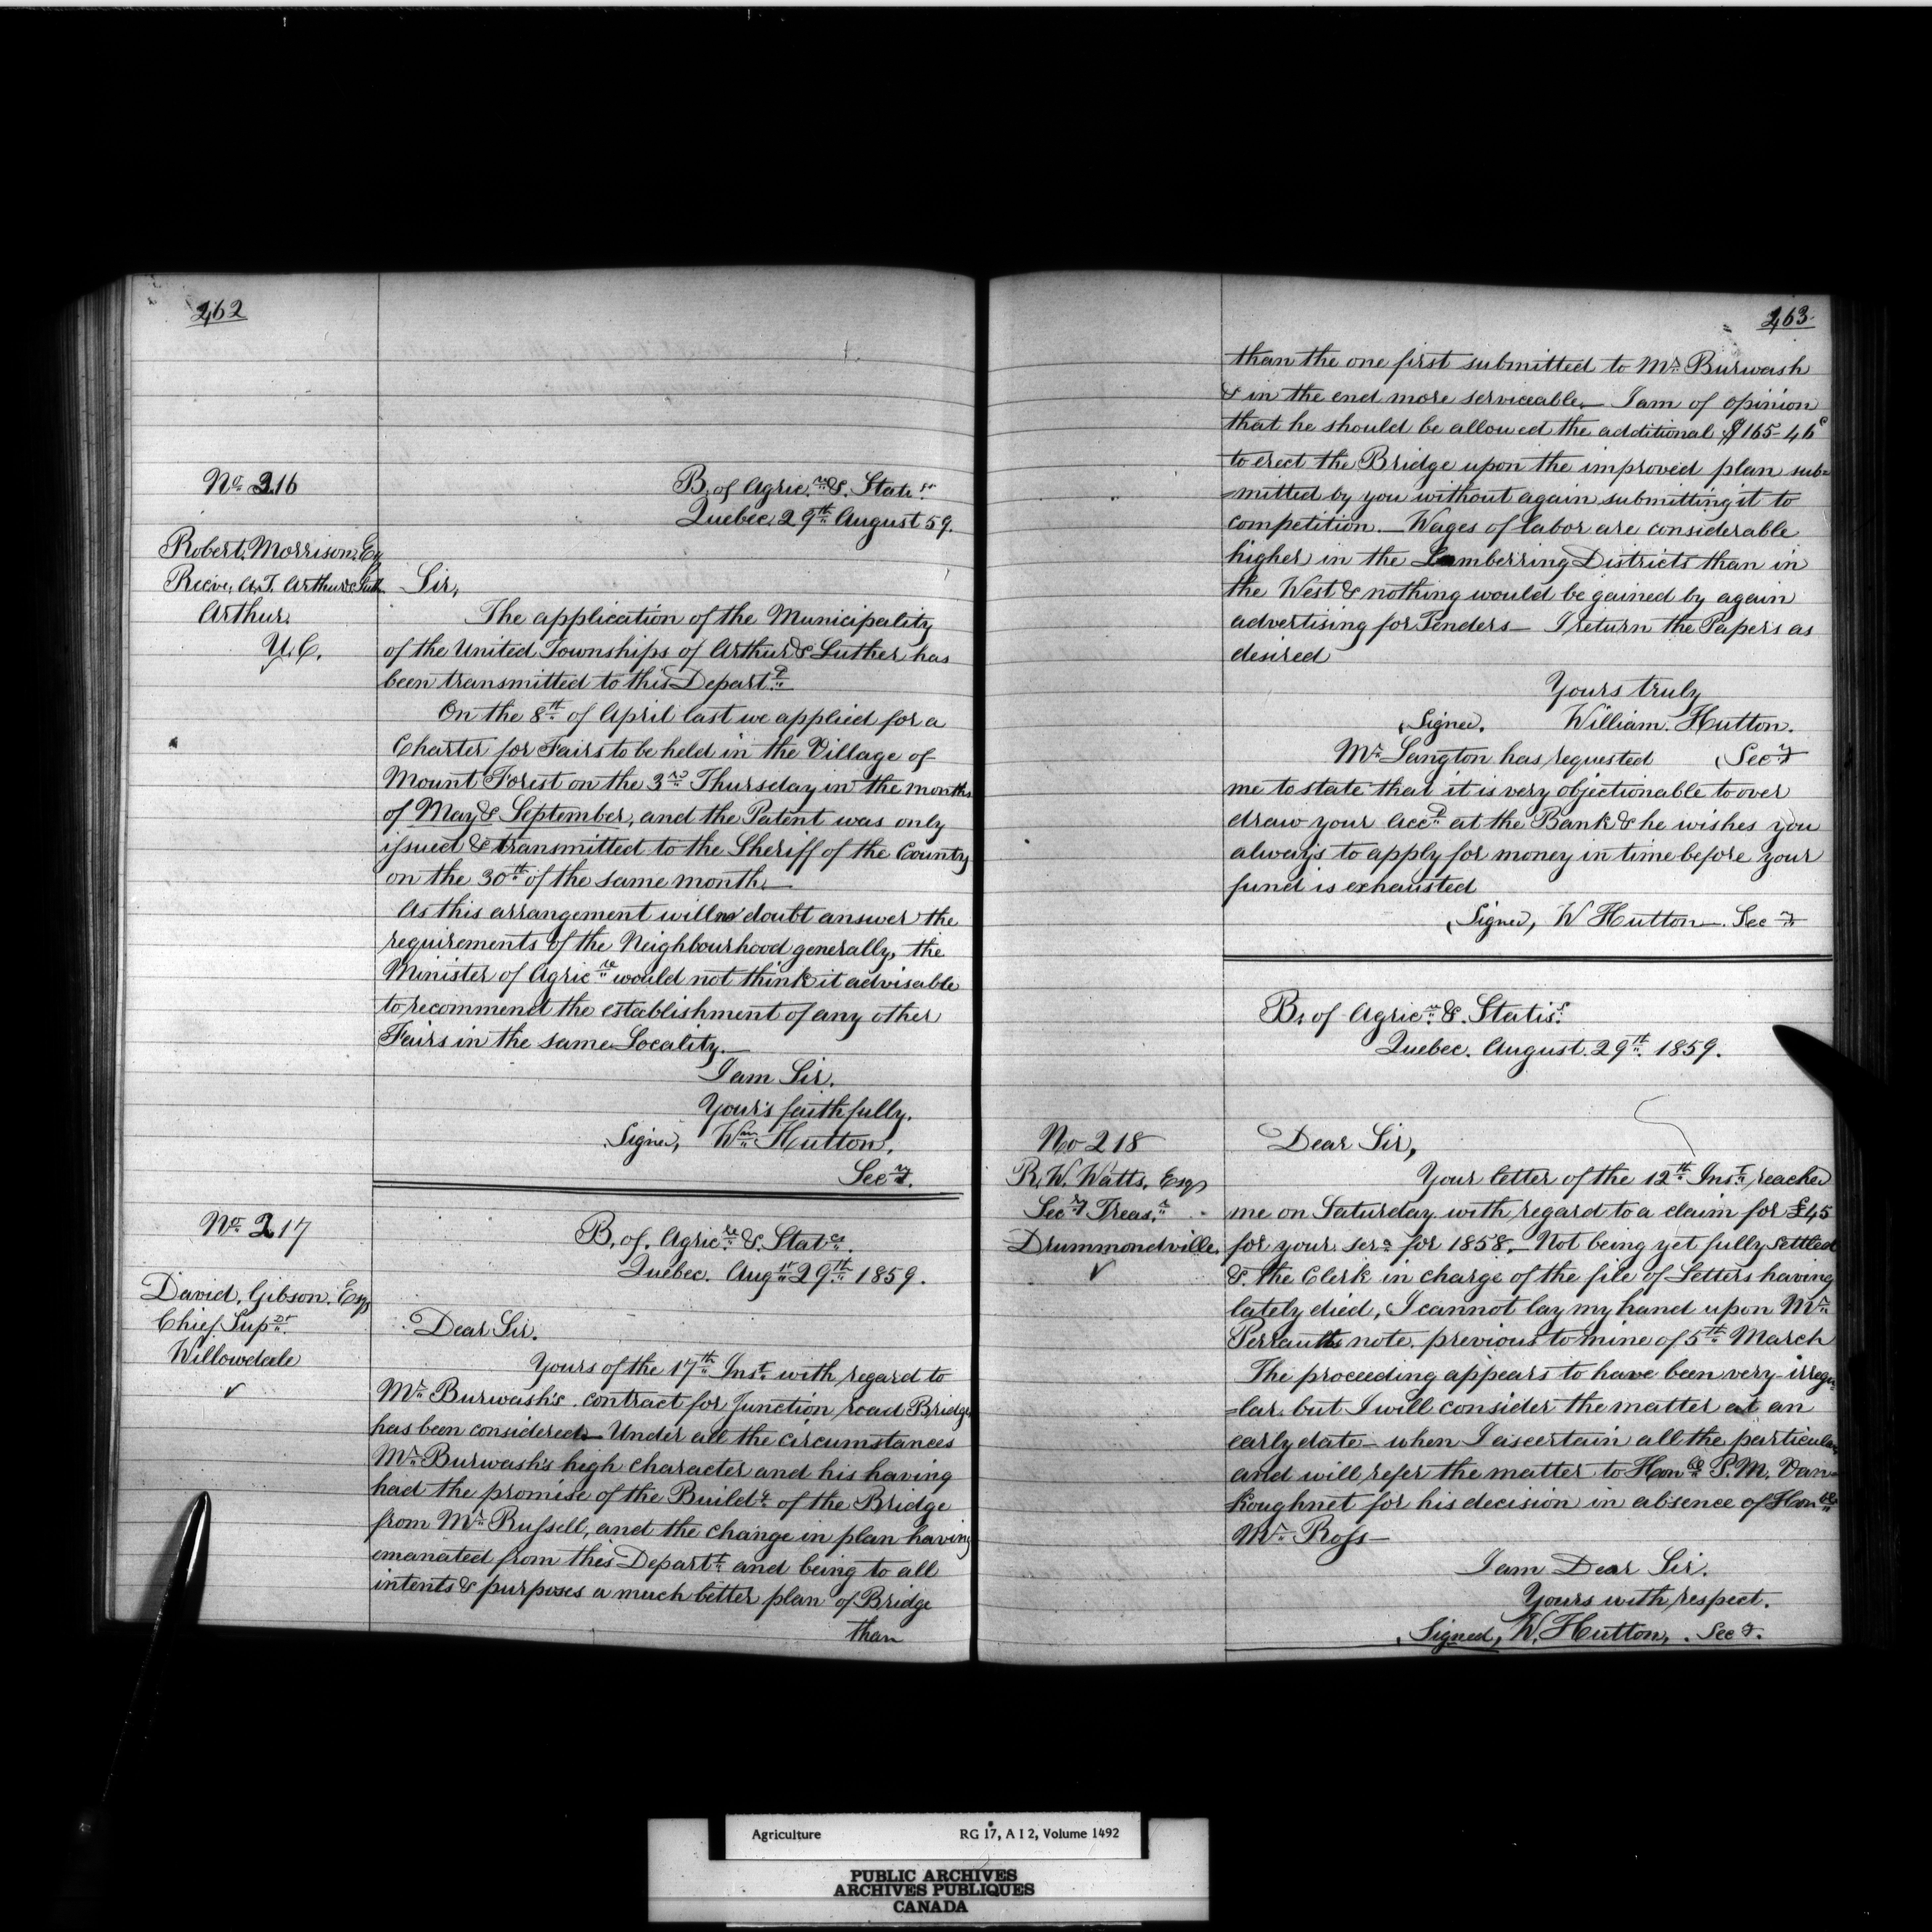 262
No 216
B. of Agricre & Statcs
Quebec 29th August 59.
Robert Morrison Esq
Reeve, U.T. Arthur & Luth.
Arthur.
U.C.
Sir,
The application of the Municipality
of the United Townships of Arthur & Luther has
been transmitted to this Departt
On the 8th of April last we applied for a
Charter for Fairs to be held in the Village of
Mount Forest on the 3rd Thursday in the months
of May & September, and the Patent was only
issued & transmitted to the Sheriff of the County
on the 30th of the same month.—
As this arrangement will no doubt answer the
requirements of the Neighbourhood generally, the
Minister of Agricre would not think it advisable
to recommend the establishment of any other
Fairs in the same Locality.—
I am Sir.
Your's faithfully.
Signed, Wm Hutton,
Secy.
No 217
B. of. Agricre & Statcs.
Quebec. Augst 29th 1859.
David. Gibson. Esq
Chief Supdt.
Willowdale
✓
Dear Sir.
Yours of the 17th Inst. with regard to
Mr Burwash's contract for Junction road Bridge
has been considered— Under all the circumstances
Mr Burwash's high character and his having
had the promise of the Buildg of the Bridge
from Mr Russell, and the change in plan having
emanated from this Departt and being to all
intents & purposes a much better plan of Bridge
than
263.
than the one first submitted to Mr Burwash
& in the end more serviceable.— I am of opinion
that he should be allowed the additional $165-46c
to erect the Bridge upon the improved plan sub=
=mitted by you without again submitting it to
competition.— Wages of labor are considerable
higher in the Lumberring Districts than in
the West & nothing would be gained by again
advertising for Tenders— I return the Papers as
desired
Yours truly
(Signed. William. Hutton.
(Secy
Mr Langton has requested
me to state that it is very objectionable to over
draw your acct at the Bank & he wishes you
always to apply for money in time before your
fund is exhausted
(Signed, W Hutton—. Secy
B. of Agricre & Statiss.
Quebec. August. 29th 1859.
No 218
R. W. Watts. Esq
Secy Treasr.
Drummondville.
✓
Dear Sir,
Your letter of the 12th Inst reached
me on Saturday with regard to a claim for £45
for your sers for 1858.— Not being yet fully settled
& the Clerk in charge of the file of Letters having
lately died, I cannot lay my hand upon Mr
Perraults note previous to mine of 5th March
The proceeding appears to have been very irregu=
=lar. but I will consider the matter at an
early date— when I ascertain all the particulars
and will refer the matter to Honble P. M. Van=
Koughnet for his decision in absence of Honble
Mr Ross—
I am Dear Sir.
Yours with respect.
(Signed, W. Hutton, Secy.
Agriculture RG 17, A I 2, Volume 1492
PUBLIC ARCHIVES
ARCHIVES PUBLIQUES
CANADA